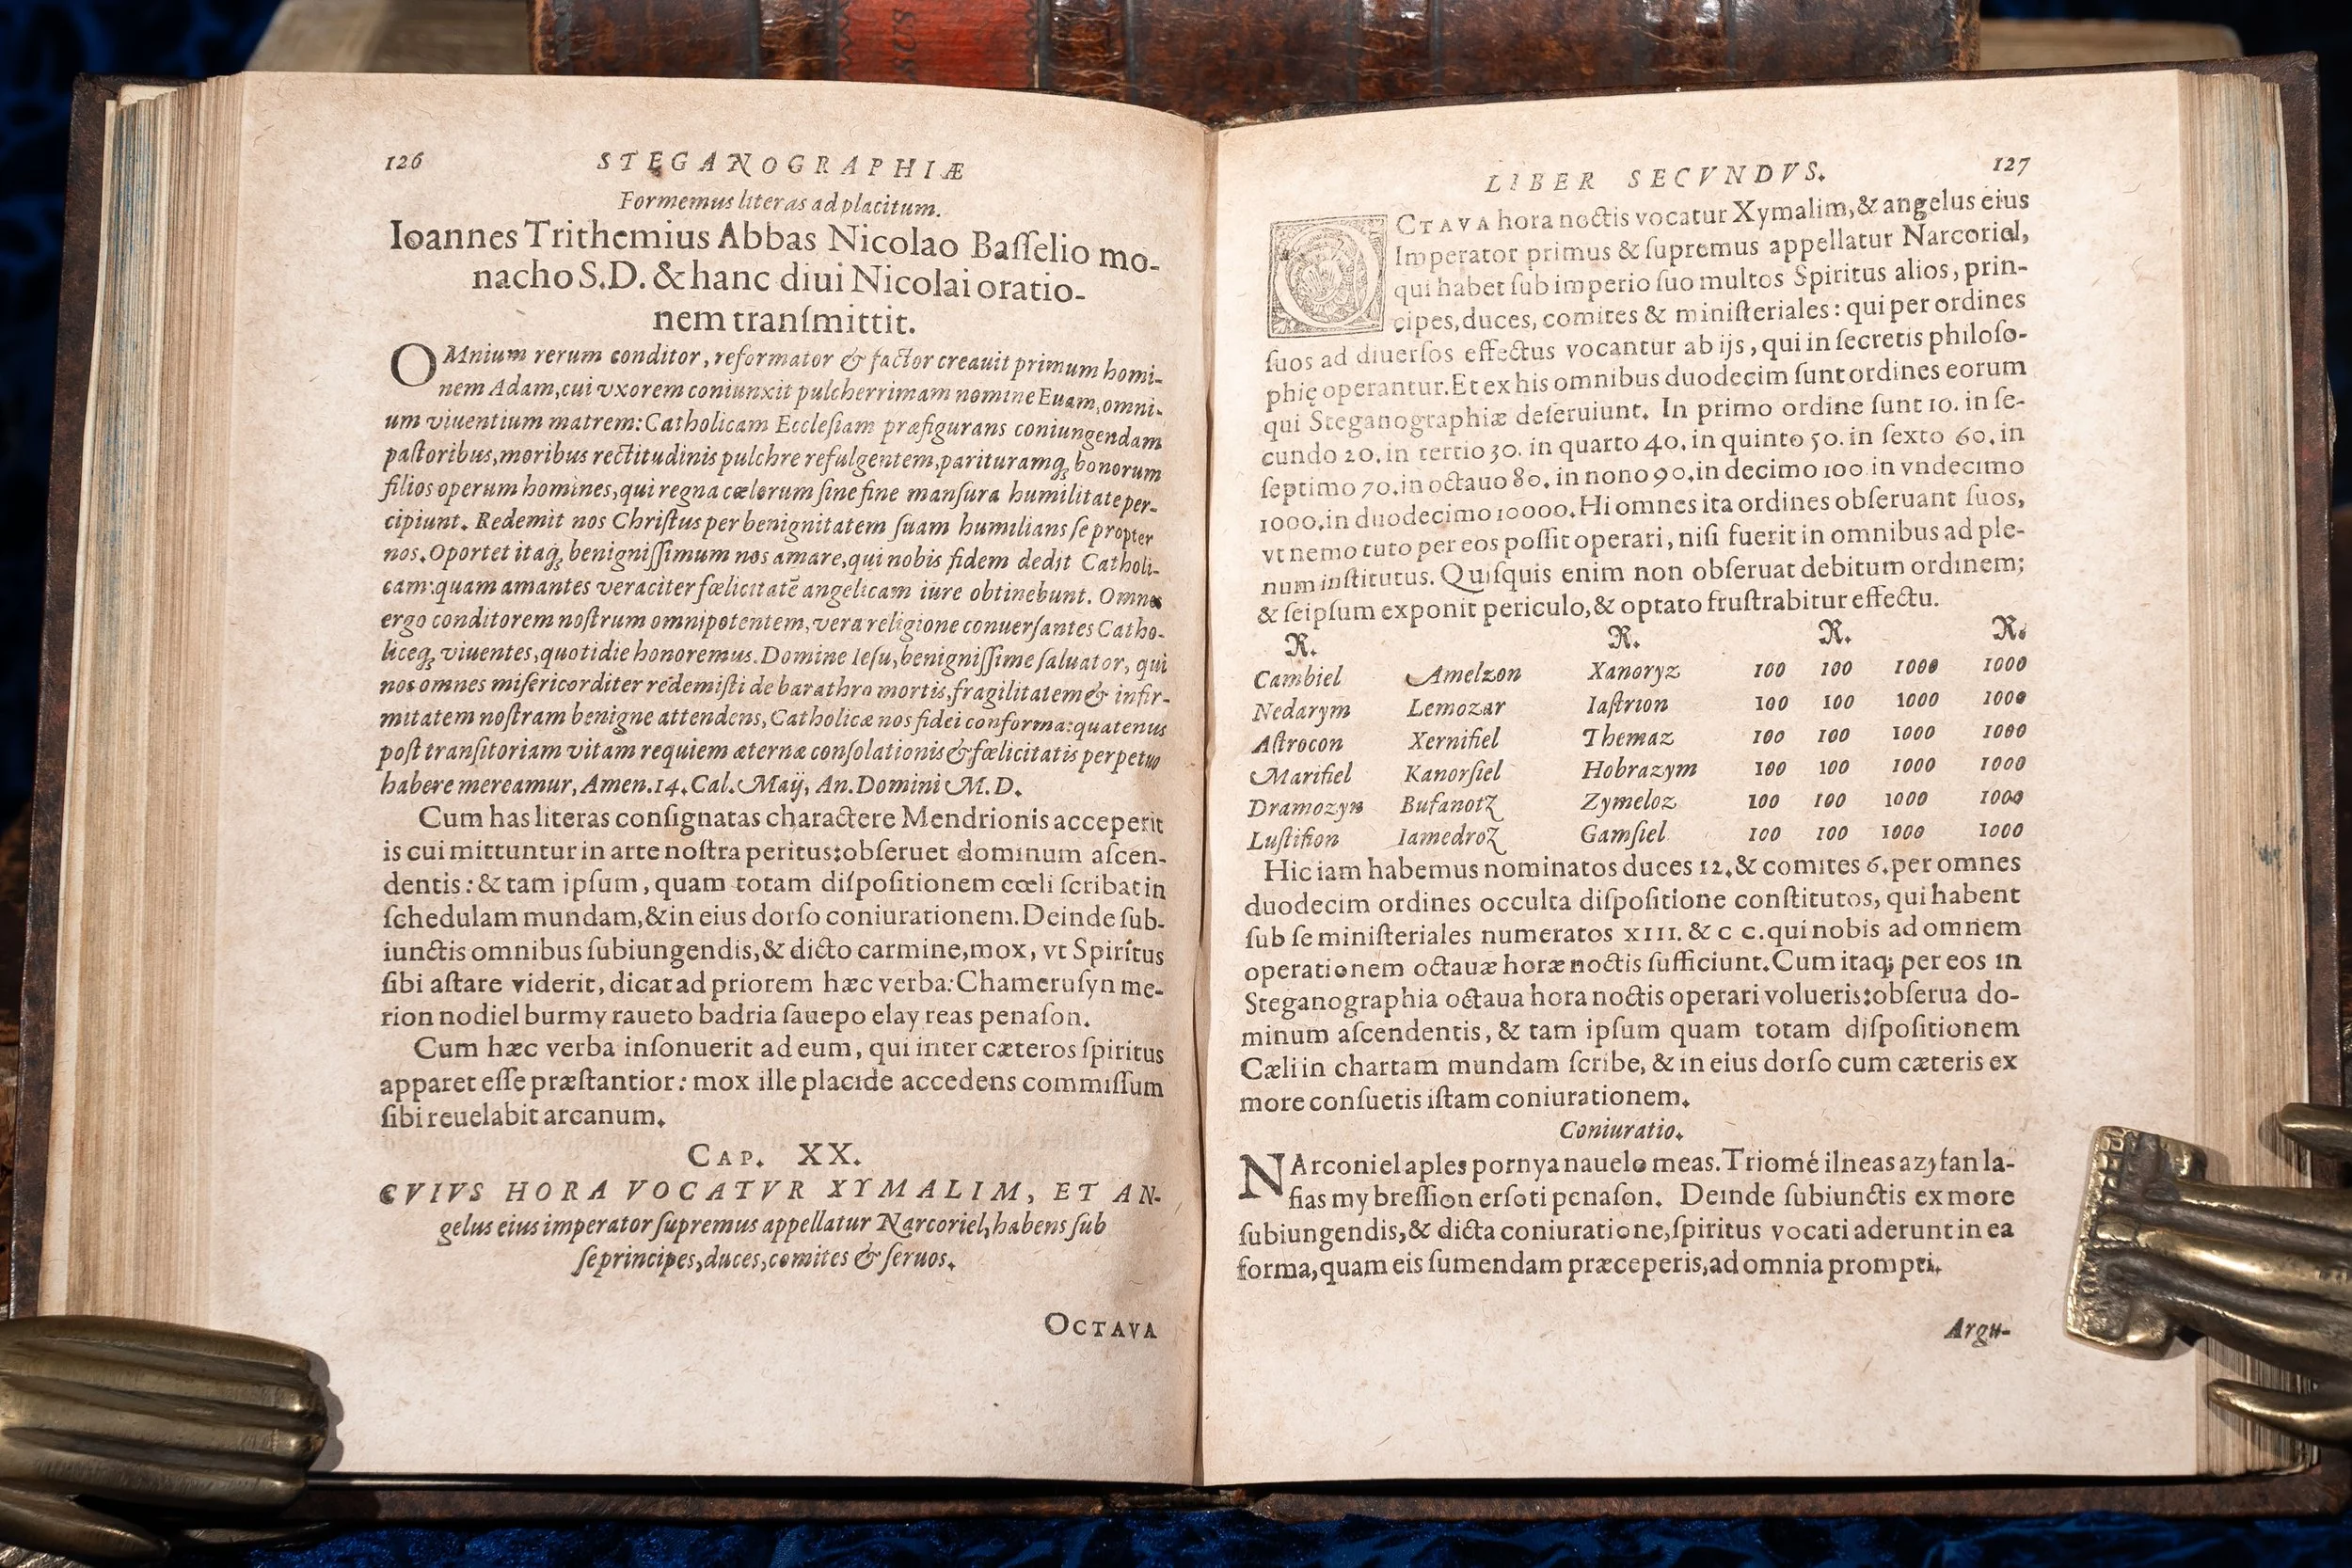 126 STEGANOGRAPHIÆ
Formemus literas ad placitum.
Ioannes Trithemius Abbas Nicolao Baſſelio mo-
nacho S.D. & hanc diui Nicolai oratio-
nem tranſmittit.
OMnium rerum conditor, reformator & factor creauit primum homi-
nem Adam, cui vxorem coniunxit pulcherrimam nomine Euam, omni-
um viuentium matrem: Catholicam Eccleſiam præfigurans coniungendam
paſtoribus, moribus rectitudinis pulchre refulgentem, parituramq; bonorum
filios operum homines, qui regna cœlorum ſine fine manſura humilitate per-
cipiunt. Redemit nos Chriſtus per benignitatem ſuam humilians ſe propter
nos. Oportet itaq; benigniſſimum nos amare, qui nobis fidem dedit Catholi-
cam: quam amantes veraciter fœlicitatē angelicam iure obtinebunt. Omnes
ergo conditorem noſtrum omnipotentem, vera religione conuerſantes Catho-
liceq; viuentes, quotidie honoremus. Domine Ieſu, benigniſſime ſaluator, qui
nos omnes miſericorditer redemiſti de barathro mortis, fragilitatem & infir-
mitatem noſtram benigne attendens, Catholicæ nos fidei conforma: quatenus
poſt tranſitoriam vitam requiem æternæ conſolationis & fœlicitatis perpetuo
habere mereamur, Amen. 14. Cal. Maij, An. Domini M. D.
Cum has literas conſignatas charactere Mendrionis acceperit
is cui mittuntur in arte noſtra peritus: obſeruet dominum aſcen-
dentis: & tam ipſum, quam totam diſpoſitionem cœli ſcribat in
ſchedulam mundam, & in eius dorſo coniurationem. Deinde ſub-
iunctis omnibus ſubiungendis, & dicto carmine, mox, vt Spiritus
ſibi aſtare viderit, dicat ad priorem hæc verba: Chameruſyn me-
rion nodiel burmy raueto badria ſauepo elay reas penaſon.
Cum hæc verba inſonuerit ad eum, qui inter cæteros ſpiritus
apparet eſſe præſtantior: mox ille placide accedens commiſſum
ſibi reuelabit arcanum.
CAP. XX.
CVIVS HORA VOCATVR XYMALIM, ET AN-
gelus eius imperator ſupremus appellatur Narcoriel, habens ſub
ſe principes, duces, comites & ſeruos.
OCTAVA
LIBER SECVNDVS. 127
OCTAVA hora noctis vocatur Xymalim, & angelus eius
Imperator primus & ſupremus appellatur Narcoriel,
qui habet ſub imperio ſuo multos Spiritus alios, prin-
cipes, duces, comites & miniſteriales: qui per ordines
ſuos ad diuerſos effectus vocantur ab ijs, qui in ſecretis philoſo-
phię operantur. Et ex his omnibus duodecim ſunt ordines eorum
qui Steganographiæ deſeruiunt. In primo ordine ſunt 10. in ſe-
cundo 20. in tertio 30. in quarto 40. in quinto 50. in ſexto 60. in
ſeptimo 70. in octauo 80. in nono 90. in decimo 100 in vndecimo
1000. in duodecimo 10000. Hi omnes ita ordines obſeruant ſuos,
vt nemo tuto per eos poſſit operari, niſi fuerit in omnibus ad ple-
num inſtitutus. Quiſquis enim non obſeruat debitum ordinem;
& ſeipſum exponit periculo, & optato fruſtrabitur effectu.
R. R. R. R.
Cambiel Amelzon Xanoryz 100 100 1000 1000
Nedarym Lemozar Iaſtrion 100 100 1000 1000
Aſtrocon Xernifiel Themaz 100 100 1000 1000
Marifiel Kanorſiel Hobrazym 100 100 1000 1000
Dramozyn Bufanotz Zymeloz 100 100 1000 1000
Luſtifion Iamedroz Gamſiel 100 100 1000 1000
Hic iam habemus nominatos duces 12. & comites 6. per omnes
duodecim ordines occulta diſpoſitione conſtitutos, qui habent
ſub ſe miniſteriales numeratos XIII. & C C. qui nobis ad omnem
operationem octauæ horæ noctis ſufficiunt. Cum itaq; per eos in
Steganographia octaua hora noctis operari volueris: obſerua do-
minum aſcendentis, & tam ipſum quam totam diſpoſitionem
Cæli in chartam mundam ſcribe, & in eius dorſo cum cæteris ex
more conſuetis iſtam coniurationem.
Coniuratio.
NArconiel aples pornya nauelo meas. Triomé ilneas azy fan la-
fias my breſſion erſoti penaſon. Deinde ſubiunctis ex more
ſubiungendis, & dicta coniuratione, ſpiritus vocati aderunt in ea
forma, quam eis ſumendam præceperis, ad omnia prompti.
Argu-